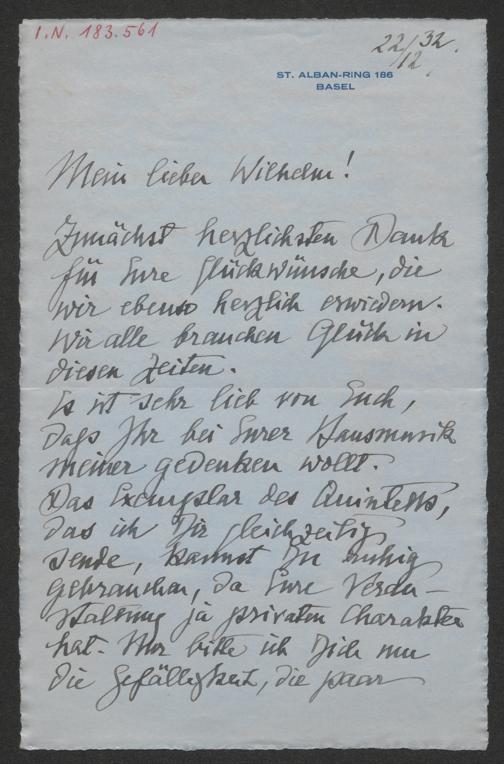 I.N. 183.561
22/12 32.
ST. ALBAN-RING 186
BASEL
Mein lieber Wilhelm!
Zunächst herzlichsten Dank
für Eure Glückwünsche, die
wir ebenso herzlich erwiedern.
Wir alle brauchen Glück in
diesen Zeiten.
Es ist sehr lieb von Euch,
daß Ihr bei Eurer Hausmusik
meiner gedenken wollt.
Das Exemplar des Quintetts,
das ich Dir gleichzeitig
sende, kannst Du ruhig
gebrauchen, da Eure Veran-
staltung ja privaten Charakter
hat. Nur bitte ich Dich um
die Gefälligkeit, die paar